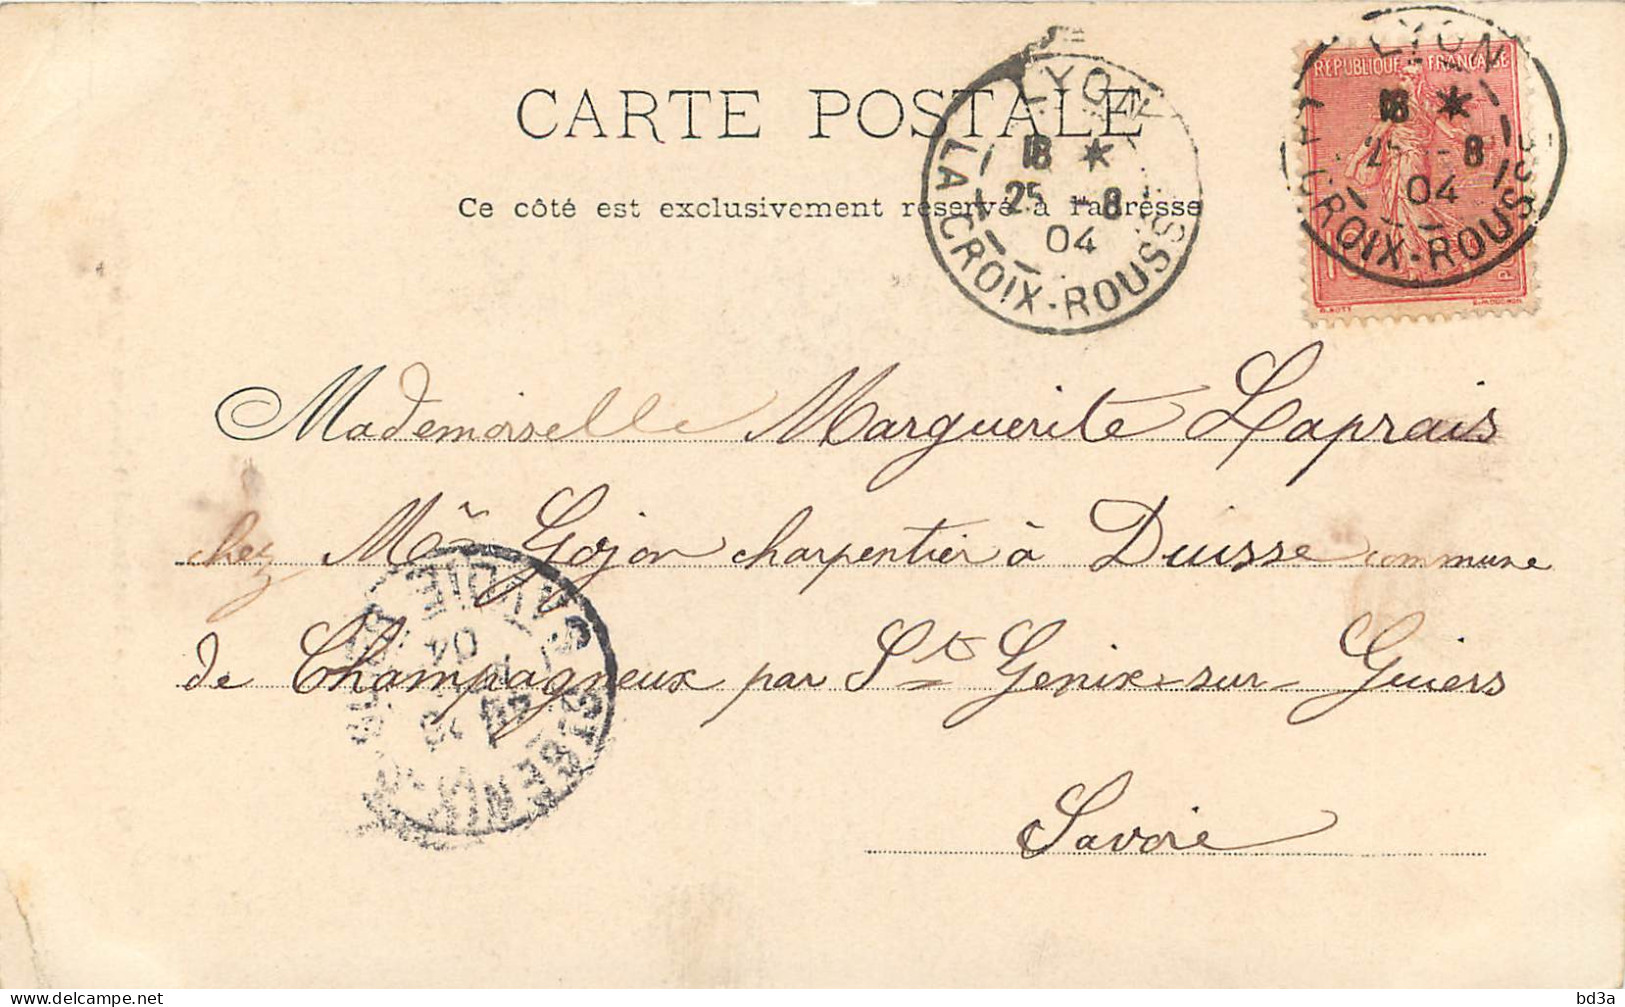 CARTE POSTALE
Ce côté est exclusivement réservé à l'adresse
LYON
18 *
25 -8
04
LA CROIX-ROUSSE
REPUBLIQUE FRANCAISE
LYON
18 *
25 -8
04
LA CROIX-ROUSSE
O.ROTY
E.MOUCHON
Mademoiselle Marguerite Laprais
chez Mr Gojon charpentier à Duisse commune
de Champagneux par St Genix-sur-Guiers
Savoie
SAVOIE
04
bd3a